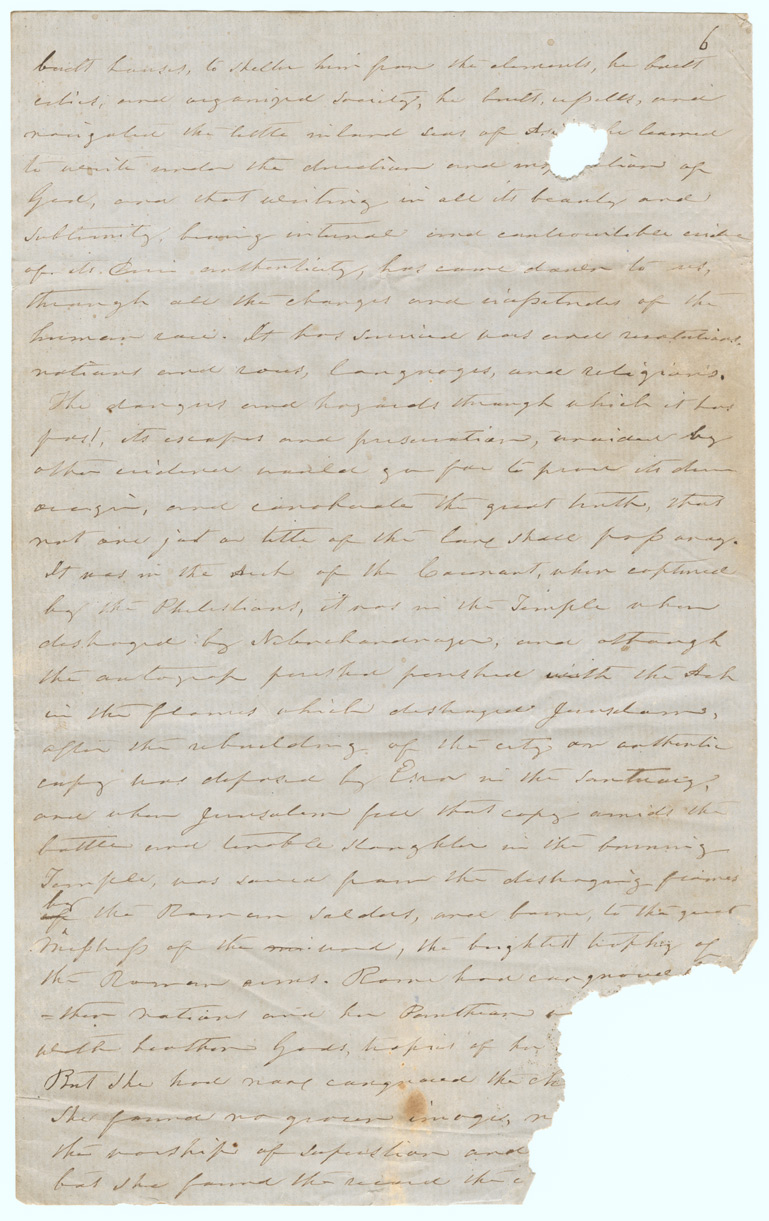 6
built houses, to shelter him from the elements, he built
cities, and organized society, he built, vessells, and
navigated the little inland seas of he learned
to write under the direction and of
God, and that writing in all its beauty and
sublimity, bearing internal and
of its authenticity, has come down to us,
through all the changes and of the
human race. It has survived wars and revolutions,
nations and races, languages, and religions.
The dangers and hazards through which it has
past, its escapes and preservation, unaided by
other evidence would go far to prove its divine
origin, and the great truth, that
not one jot or title of the law shall pass away.
It was in the Ark of the Covenant, when captured
by the Philistians, it was in the Temple when
destroyed by and although
the autograph perished with the Ark
in the flames which destroyed Jerusalem,
after the rebuilding of the city an authentic
copy was deposed by Esra in the sanctuary,
and when Jerusalem fell that copy amids the
battle and terrible slaughter in the burning
Temple, was saved from the destroying flames
by the Roman soldiers, and borne, to the great
of the world, the brightest trophy of
the Roman arms. Rome had conquored
=ther nations and her Pantheon
with heathen Gods, of her
But she had now conquored the
She found no graven image,
the worship of and
but she found the record the